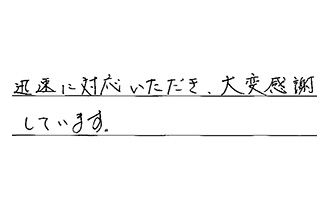 迅速に対応いただき、大変感謝
しています。